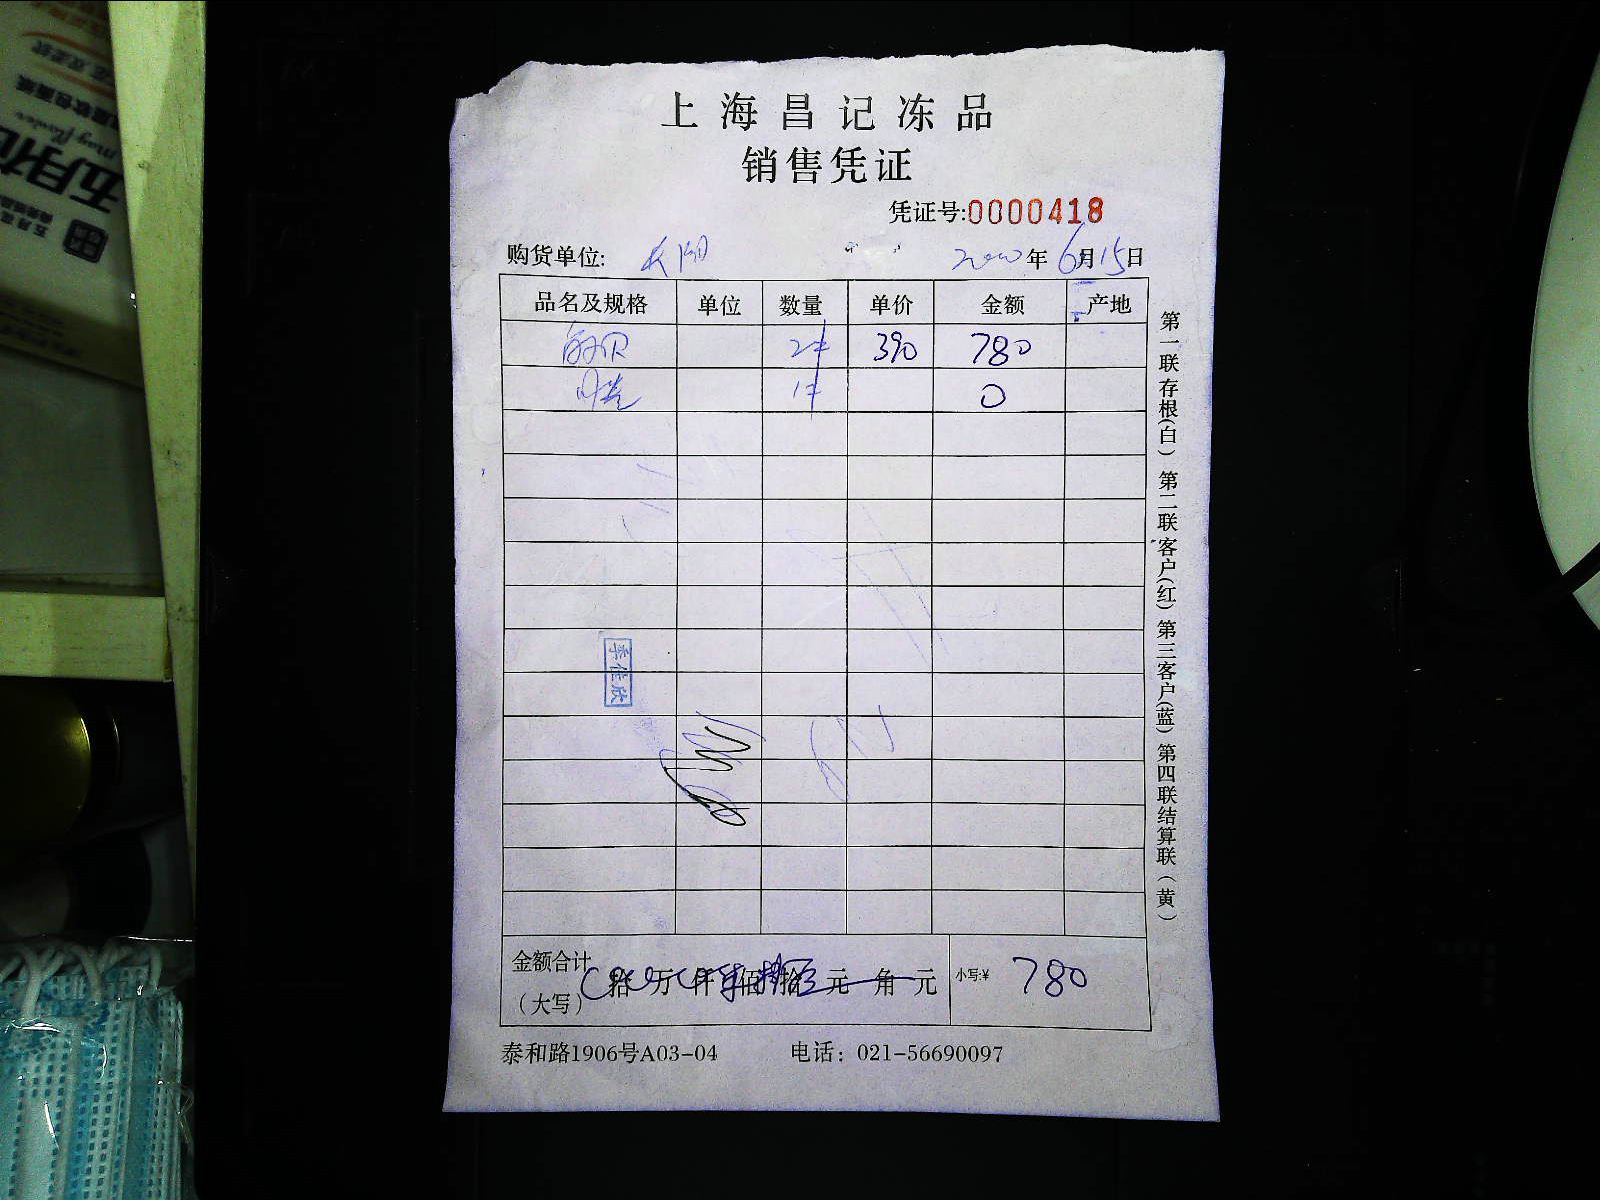 上海昌记冻品
销售凭证
凭证号:0000418
购货单位: 年6月15日
品名及规格 单位 数量 单价 金额 产地
2 390 780
1 0
季佳欣
金额合计
(大写) 拾 万 仟 佰 拾 元 角 元 小写:¥ 780
泰和路1906号A03-04 电话：021-56690097
第一联存根(白) 第二联客户(红) 第三客户(蓝) 第四联结算联(黄)
五月花